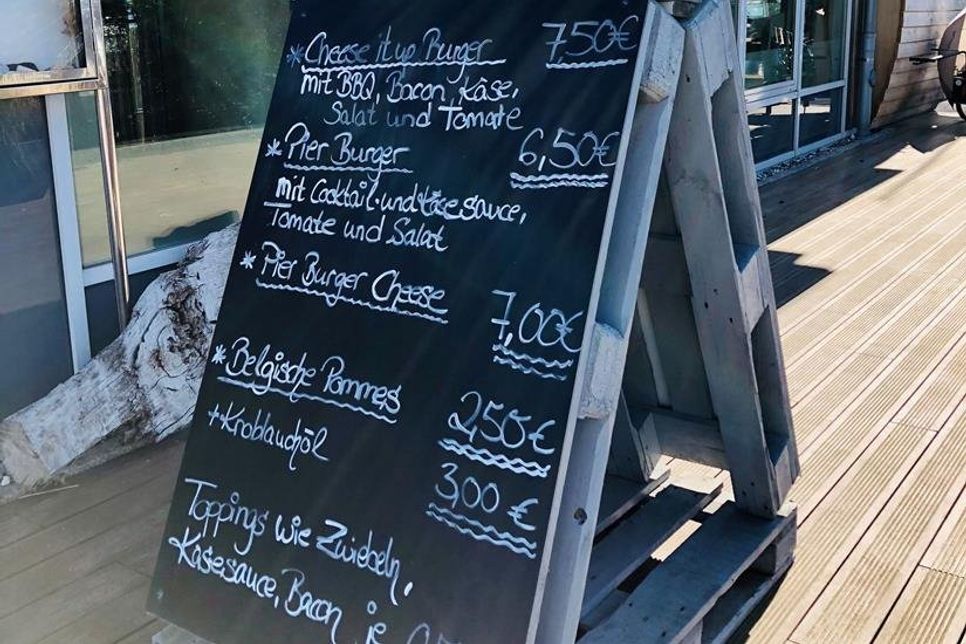 * Cheese it up Burger 7,50€
mit BBQ, Bacon, Käse,
Salat und Tomate
* Pier Burger 6,50€
mit Cocktail- und Käsesauce,
Tomate und Salat
* Pier Burger Cheese 7,00€
* Belgische Pommes 2,50€
+ Knoblauchöl 3,00 €
Toppings wie Zwiebeln,
Käsesauce, Bacon je